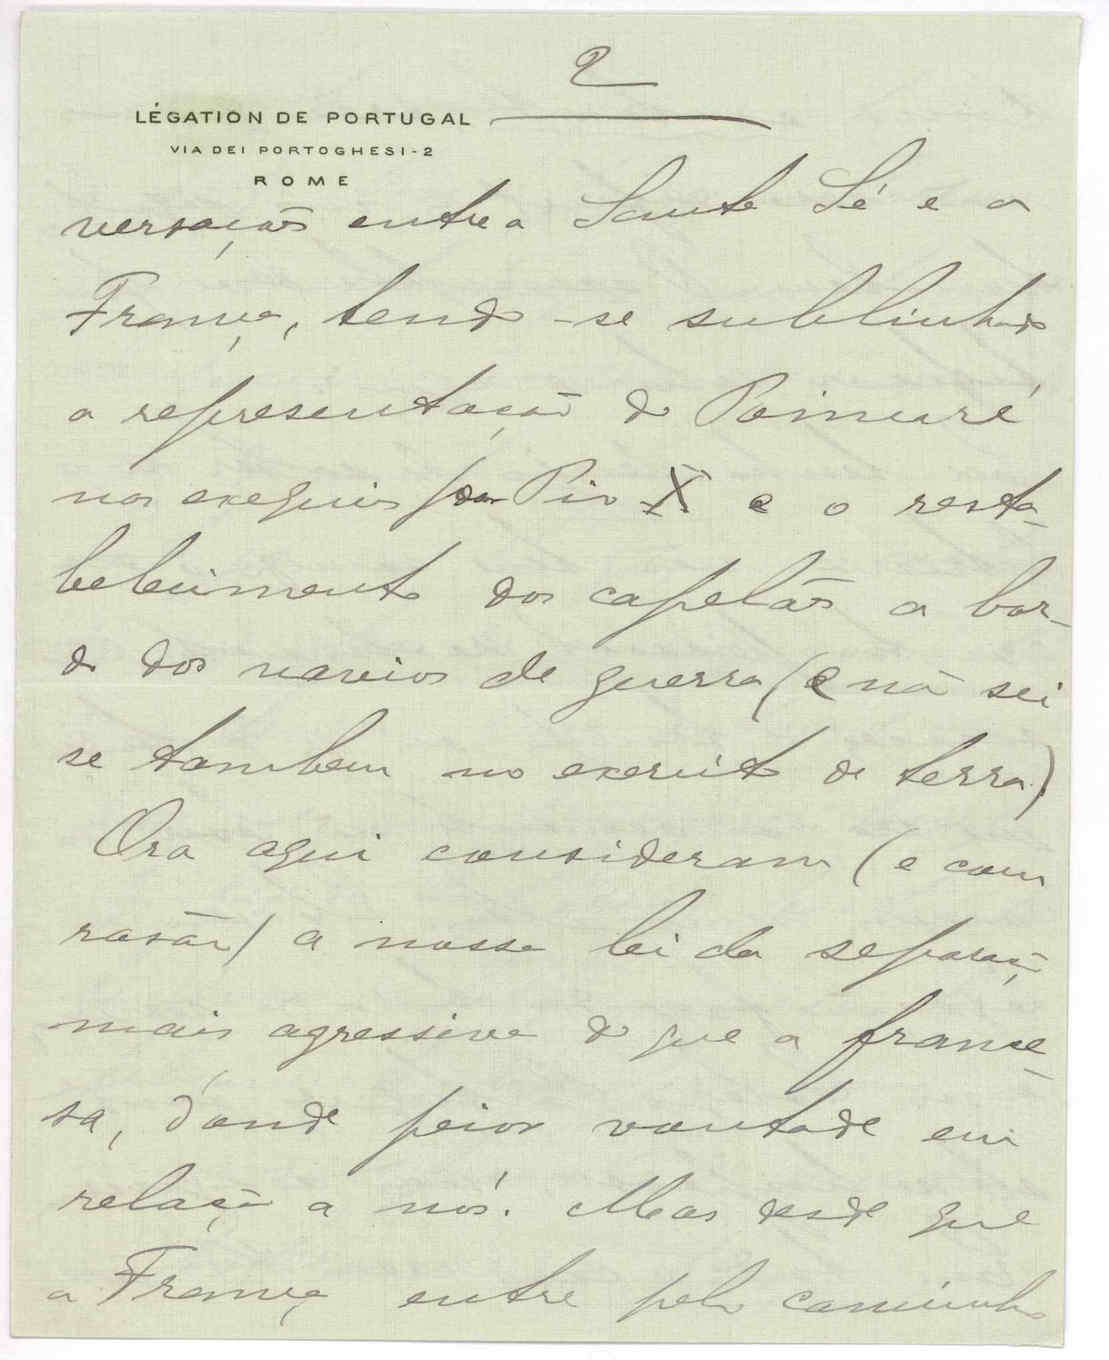 2
LÉGATION DE PORTUGAL
VIA DEI PORTOGHESI-2
ROME
versações entre a Santa Sé e a
França, tendo-se sublinhado
a representação de Poincaré
nas exequias por Pio X e o resta-
belecimento dos capelães a bor-
do dos navios de guerra (e não sei
se tambem no exercito de terra)
Ora aqui consideram (e com
rasão) a nossa lei da separação
mais agressiva do que a france-
sa, d'onde peior vontade em
relação a nós. Mas desde que
a França entre pelo caminho